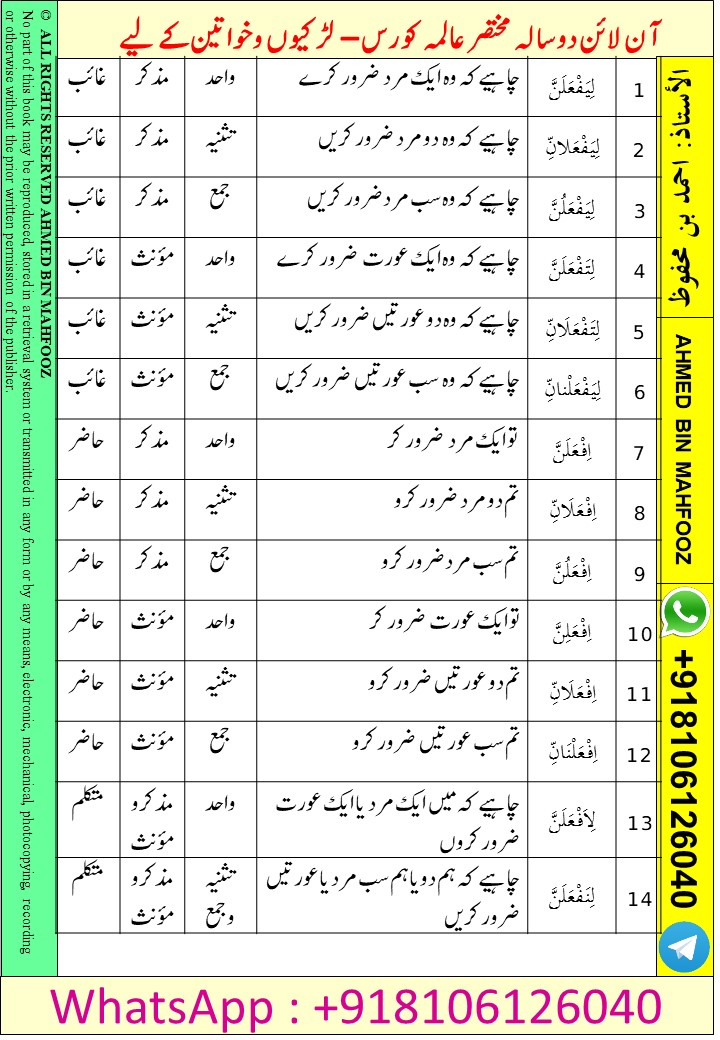 آن لائن دو سالہ مختصر عالمہ کورس – لڑکیوں و خواتین کے لیے
1 لِيَفْعَلَنَّ چاہیے کہ وہ ایک مرد ضرور کرے واحد مذکر غائب
2 لِيَفْعَلَانِّ چاہیے کہ وہ دو مرد ضرور کریں تثنیہ مذکر غائب
3 لِيَفْعَلُنَّ چاہیے کہ وہ سب مرد ضرور کریں جمع مذکر غائب
4 لِتَفْعَلَنَّ چاہیے کہ وہ ایک عورت ضرور کرے واحد مؤنث غائب
5 لِتَفْعَلَانِّ چاہیے کہ وہ دو عورتیں ضرور کریں تثنیہ مؤنث غائب
6 لِيَفْعَلْنانِّ چاہیے کہ وہ سب عورتیں ضرور کریں جمع مؤنث غائب
7 اِفْعَلَنَّ تو ایک مرد ضرور کر واحد مذکر حاضر
8 اِفْعَلَانِّ تم دو مرد ضرور کرو تثنیہ مذکر حاضر
9 اِفْعَلُنَّ تم سب مرد ضرور کرو جمع مذکر حاضر
10 اِفْعَلِنَّ تو ایک عورت ضرور کر واحد مؤنث حاضر
11 اِفْعَلَانِّ تم دو عورتیں ضرور کرو تثنیہ مؤنث حاضر
12 اِفْعَلْنَانِّ تم سب عورتیں ضرور کرو جمع مؤنث حاضر
13 لِاَفْعَلَنَّ چاہیے کہ میں ایک مرد یا ایک عورت واحد مذکر و متکلم
ضرور کروں مؤنث
14 لِنَفْعَلَنَّ چاہیے کہ ہم دو یا ہم سب مرد یا عورتیں تثنیہ مذکر و متکلم
ضرور کریں و جمع مؤنث
الأستاذ: احمد بن محفوظ
AHMED BIN MAHFOOZ
+918106126040
© ALL RIGHTS RESERVED AHMED BIN MAHFOOZ
No part of this book may be reproduced, stored in a retrieval system or transmitted in any form or by any means, electronic, mechanical, photocopying, recording
or otherwise without the prior written permission of the publisher.
WhatsApp : +918106126040